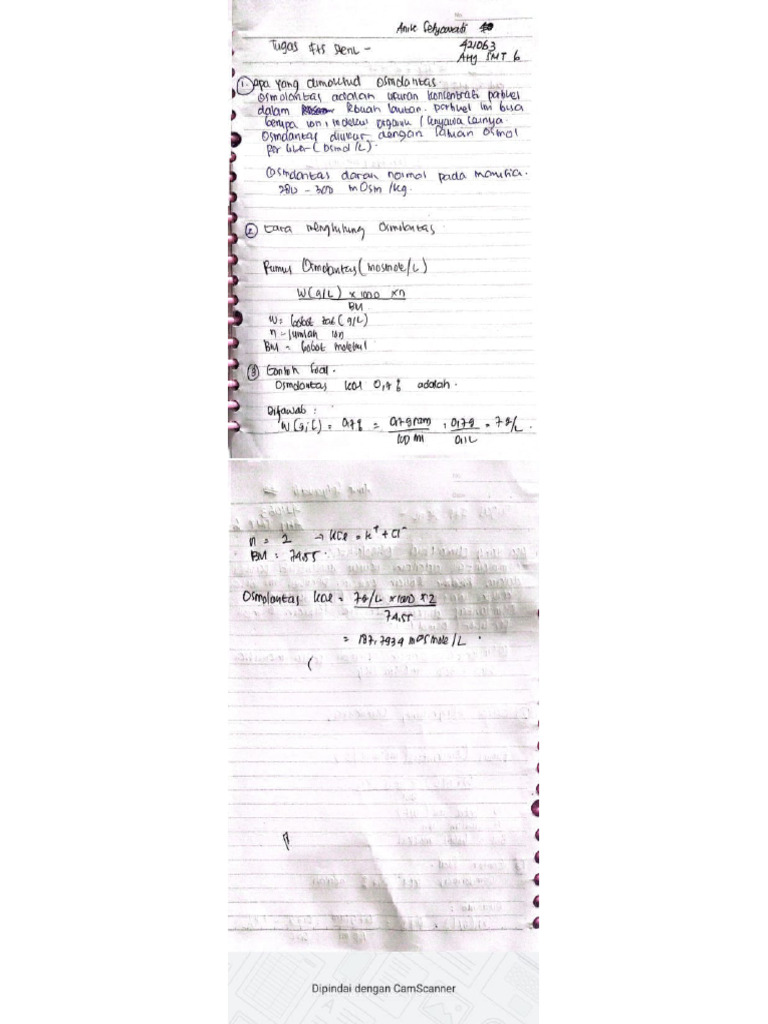 Anik Setyawati
421063
Tugas FTS Steril -
Ahg SMT 6
1. Apa yang dimaksud Osmolaritas
Osmolaritas adalah ukuran konsentrasi partikel
dalam sebuah larutan. partikel ini bisa
berupa ion, molekul organik / senyawa lainnya.
Osmolaritas diukur dengan satuan Osmol
per liter (Osmol/L).
Osmolaritas darah normal pada manusia.
280 - 300 mOsm/kg.
2 Cara menghitung Osmolaritas
Rumus Osmolaritas (mosmole/L)
W (g/L) x 1000 x n
BM
W = bobot zat (g/L)
n = jumlah ion
BM = bobot molekul
3 Contoh Soal.
Osmolaritas KCl 0,7% adalah.
Dijawab :
W (g/L) = 0,7% = 0,7 gram / 100 ml = 0,7 g / 0,1 L = 7 g/L.
n = 2 → KCl = K⁺ + Cl⁻
BM = 74,55
Osmolaritas KCl = 7 g/L x 1000 x 2
74,55
= 187,7934 mosmole/L.
Dipindai dengan CamScanner